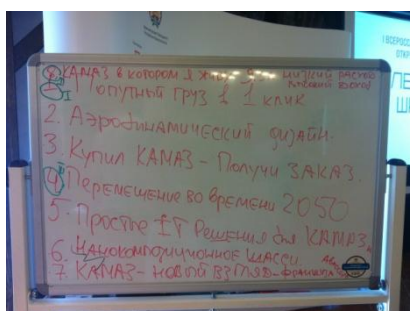 8 КАМАЗ в котором я живу
НИЗКИЙ РАСХОД
1 ПОПУТНЫЙ ГРУЗ В 1 КЛИК
2. Аэродинамический дизайн.
3. Купил КАМАЗ - Получи ЗАКАЗ.
4 Перемещение во времени 2050
5. Простые IT Решения для КАМАЗа
6. Нанокомпозиционное шасси
7. КАМАЗ - НОВЫЙ ВЗГЛЯД - франшиза
I ВСЕРОСС
ОТКР
ЛЕ
Ш